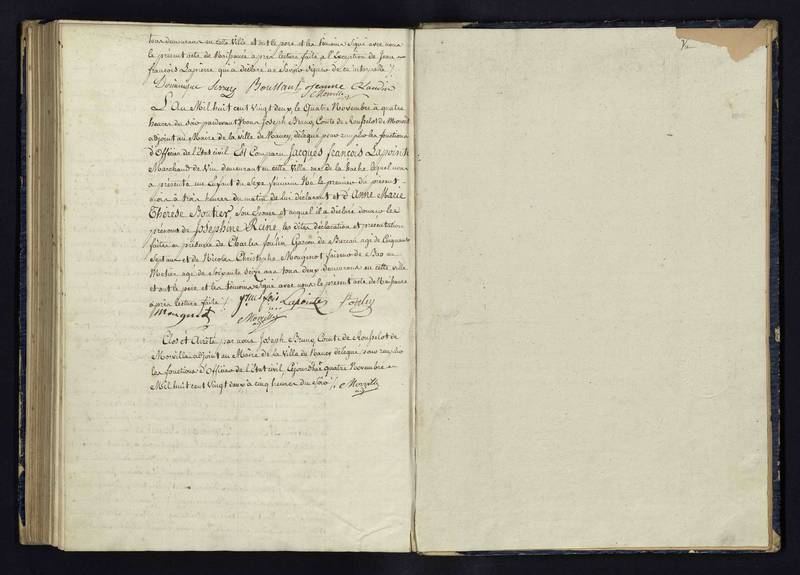 tous demeurans en cette Ville et ont le pere et les temoins signé avec nous
le présent acte de Naissance après lecture faite à l'Exception de Jean
françois Lapierre qui a déclaré ne savoir signer de ce interpellé /.
Dominique Boussant Jeanne Claudin
Morville
L'An Mil huit cent Vingt deux, le Quatre Novembre à quatre
heures du soir pardevant Nous Joseph Brunq Comte de Rousselot de Morville
adjoint au Maire de la Ville de Nancy, délégué pour remplir les fonctions
d'Officier de l'Etat civil Est Comparu Jacques françois Lapointe
Marchand de Vin demeurant en cette Ville rue de la hache, lequel nous
a présenté un Enfant du Sexe féminin Né le premier du présent
mois à trois heures du matin de lui déclarant et d'Anne Marie
Thérèse Boutier, Son Epouse et auquel il a déclaré donner les
prénoms de Joséphine Reine, les dites déclaration et présentation
faites en présence de Charles Garçon de Bureau agé de Cinquante
Sept ans et de Nicolas Christophe Mougenot faiseur de Bas au
Metier agé de Soixante seize ans tous deux demeurans en cette ville
et ont le pere et les temoins signé avec nous le présent acte de Naissance
après lecture faite /.
Mougenot Lapointe
Morville
Clos et Arrêté par nous Joseph Brunq Comte de Rousselot de
Morville adjoint au Maire de la Ville de Nancy délégué pour remplir
les fonctions d'Officier de l'Etat civil, Cejourd'hui quatre Novembre
Mil huit cent Vingt deux à cinq heures du Soir /. Morville